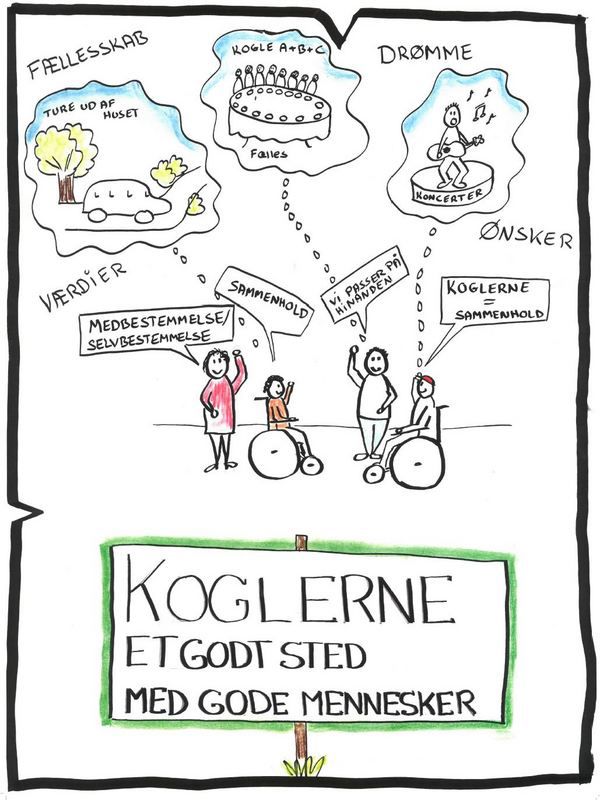 FÆLLESSKAB
DRØMME
TURE UD AF
HUSET
KOGLE A+B+C
Fælles
KONCERTER
ØNSKER
VÆRDIER
MEDBESTEMMELSE/
SELVBESTEMMELSE
SAMMENHOLD
VI PASSER PÅ
HINANDEN
KOGLERNE
=
SAMMENHOLD
KOGLERNE
ET GODT STED
MED GODE MENNESKER